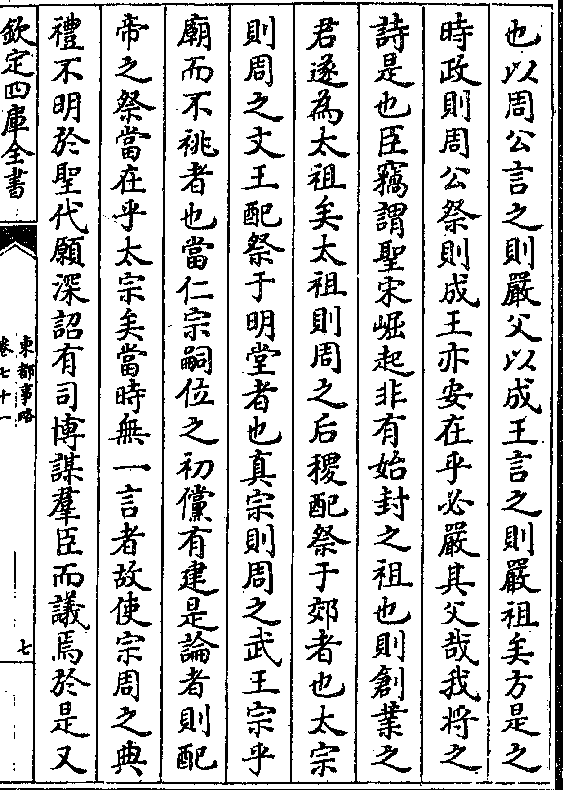 也以周公言之則嚴父以成王言之則嚴祖矣方是之
時政則周公祭則成王亦安在乎必嚴其父哉我將之
詩是也臣竊謂聖宋崛起非有始封之祖也則創業之
君遂為太祖矣太祖則周之后稷配祭于郊者也太宗
則周之文王配祭于明堂者也真宗則周之武王宗乎
廟而不祧者也當仁宗嗣位之初儻有建是論者則配
帝之祭當在乎太宗矣當時無一言者故使宗周之典
禮不明於聖代願深詔有司博謀羣臣而議焉於是又
欽定四庫全書
東都事略
卷七十一
七